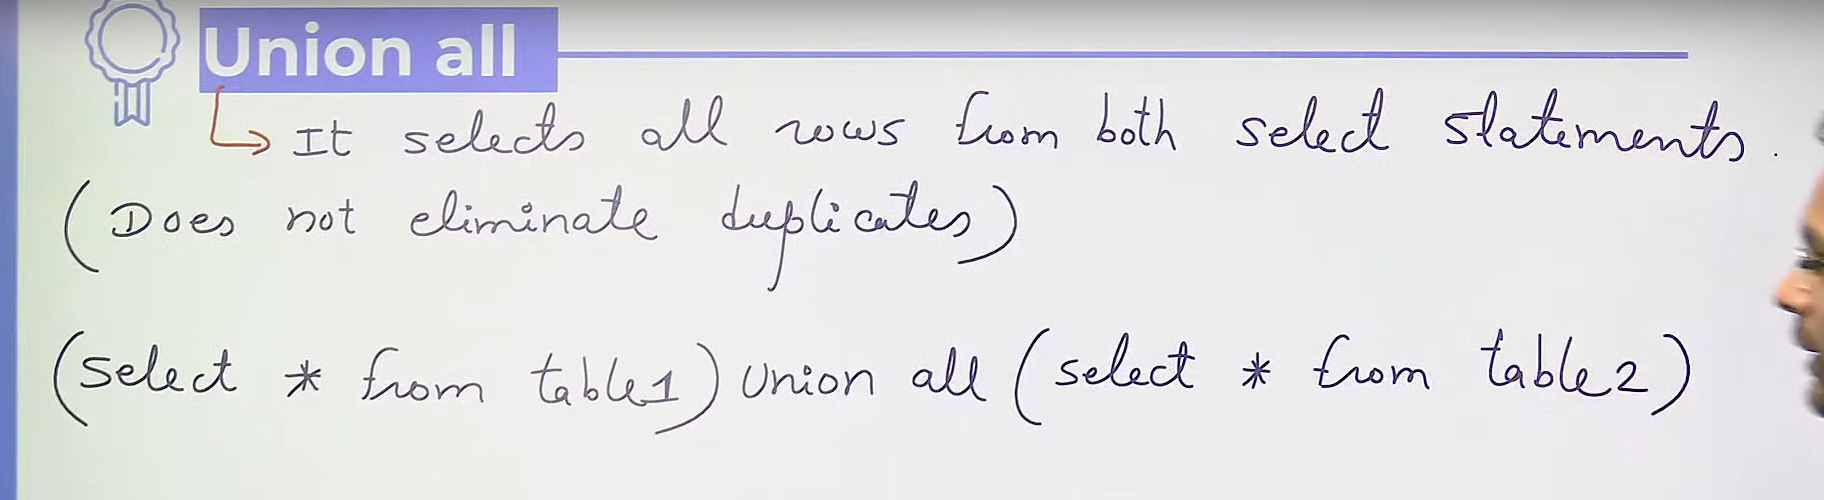 Union all
It selects all rows from both select statements.
(Does not eliminate duplicates)
(select * from table1) Union all (select * from table2)